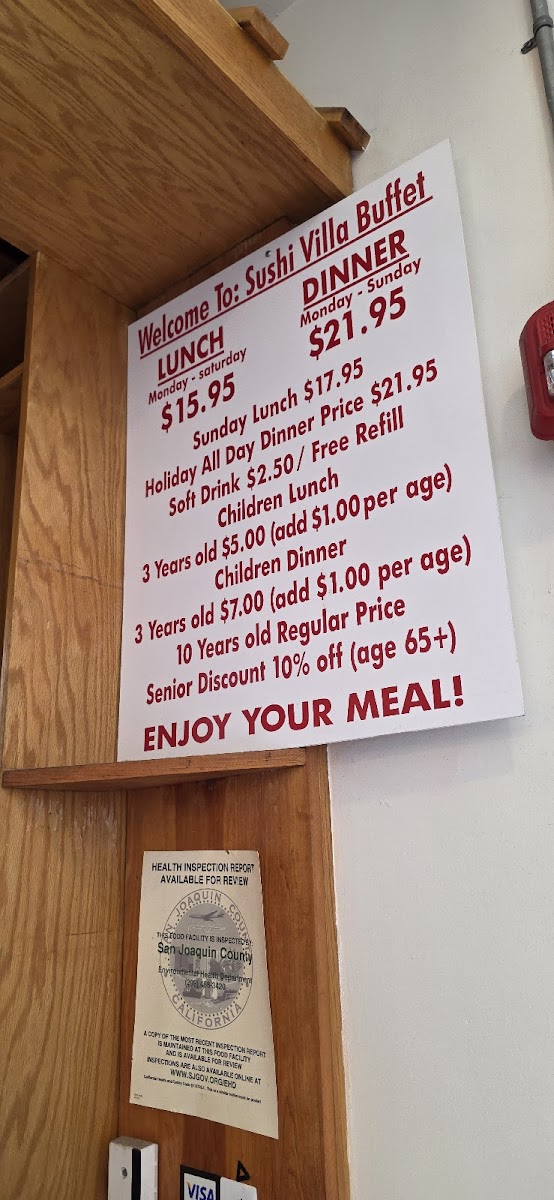 Welcome To: Sushi Villa Buffet
LUNCH
Monday - saturday
$15.95
DINNER
Monday - Sunday
$21.95
Sunday Lunch $17.95
Holiday All Day Dinner Price $21.95
Soft Drink $2.50/ Free Refill
Children Lunch
3 Years old $5.00 (add $1.00 per age)
Children Dinner
3 Years old $7.00 (add $1.00 per age)
10 Years old Regular Price
Senior Discount 10% off (age 65+)
ENJOY YOUR MEAL!
HEALTH INSPECTION REPORT
AVAILABLE FOR REVIEW
SAN JOAQUIN COUNTY
THIS FOOD FACILITY IS INSPECTED BY:
San Joaquin County
Environmental Health Department
(209) 468-3420
CALIFORNIA
A COPY OF THE MOST RECENT INSPECTION REPORT
IS MAINTAINED AT THIS FOOD FACILITY
AND IS AVAILABLE FOR REVIEW
INSPECTIONS ARE ALSO AVAILABLE ONLINE AT
WWW.SJGOV.ORG/EHD
VISA